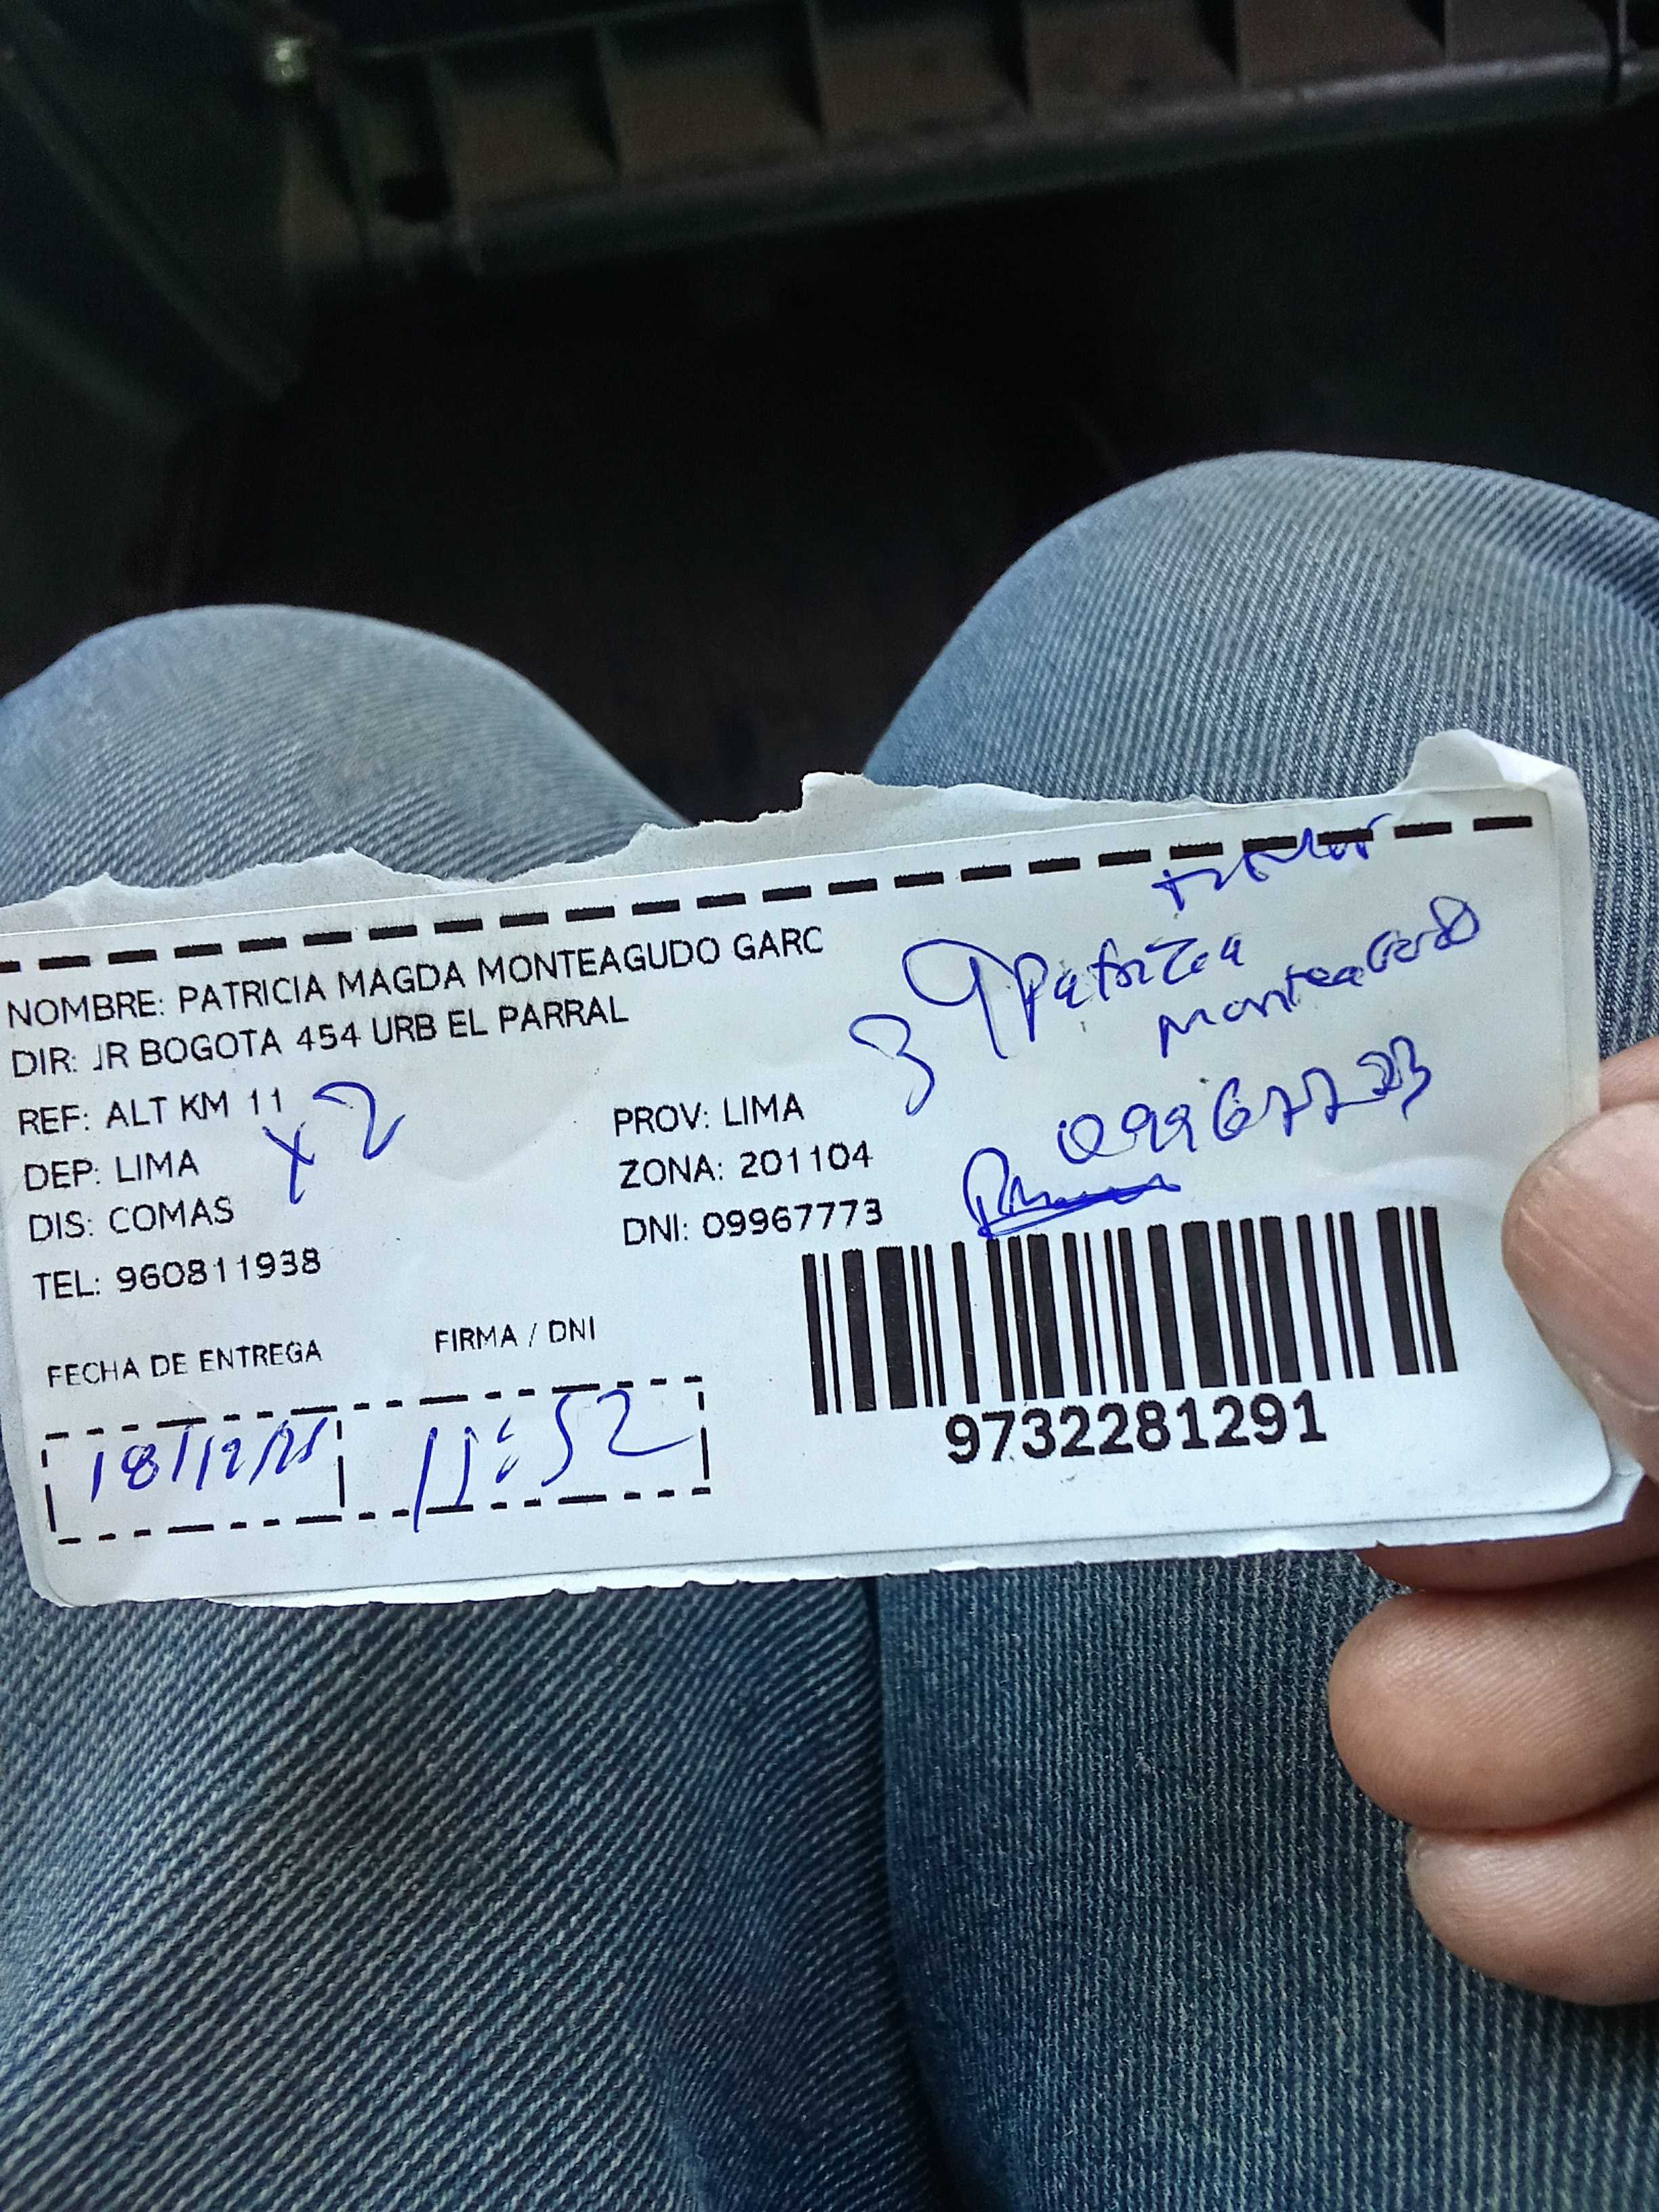 NOMBRE: PATRICIA MAGDA MONTEAGUDO GARC
DIR: JR BOGOTA 454 URB EL PARRAL
REF: ALT KM 11
DEP: LIMA
DIS: COMAS
TEL: 960811938
x2
PROV: LIMA
ZONA: 201104
DNI: 09967773
39
Patricia
Monteagudo
09967773
FECHA DE ENTREGA
FIRMA / DNI
18/12/25
11:52
9732281291